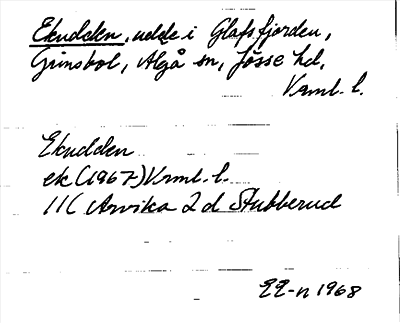 Ekudden, udde i Glafsfjorden,
Grinsbol, Älgå sn, Jösse hd,
Vrml. l.
Ekudden
ek (1967) Vrml. l.
11C Arvika 2d Stubberud
1968